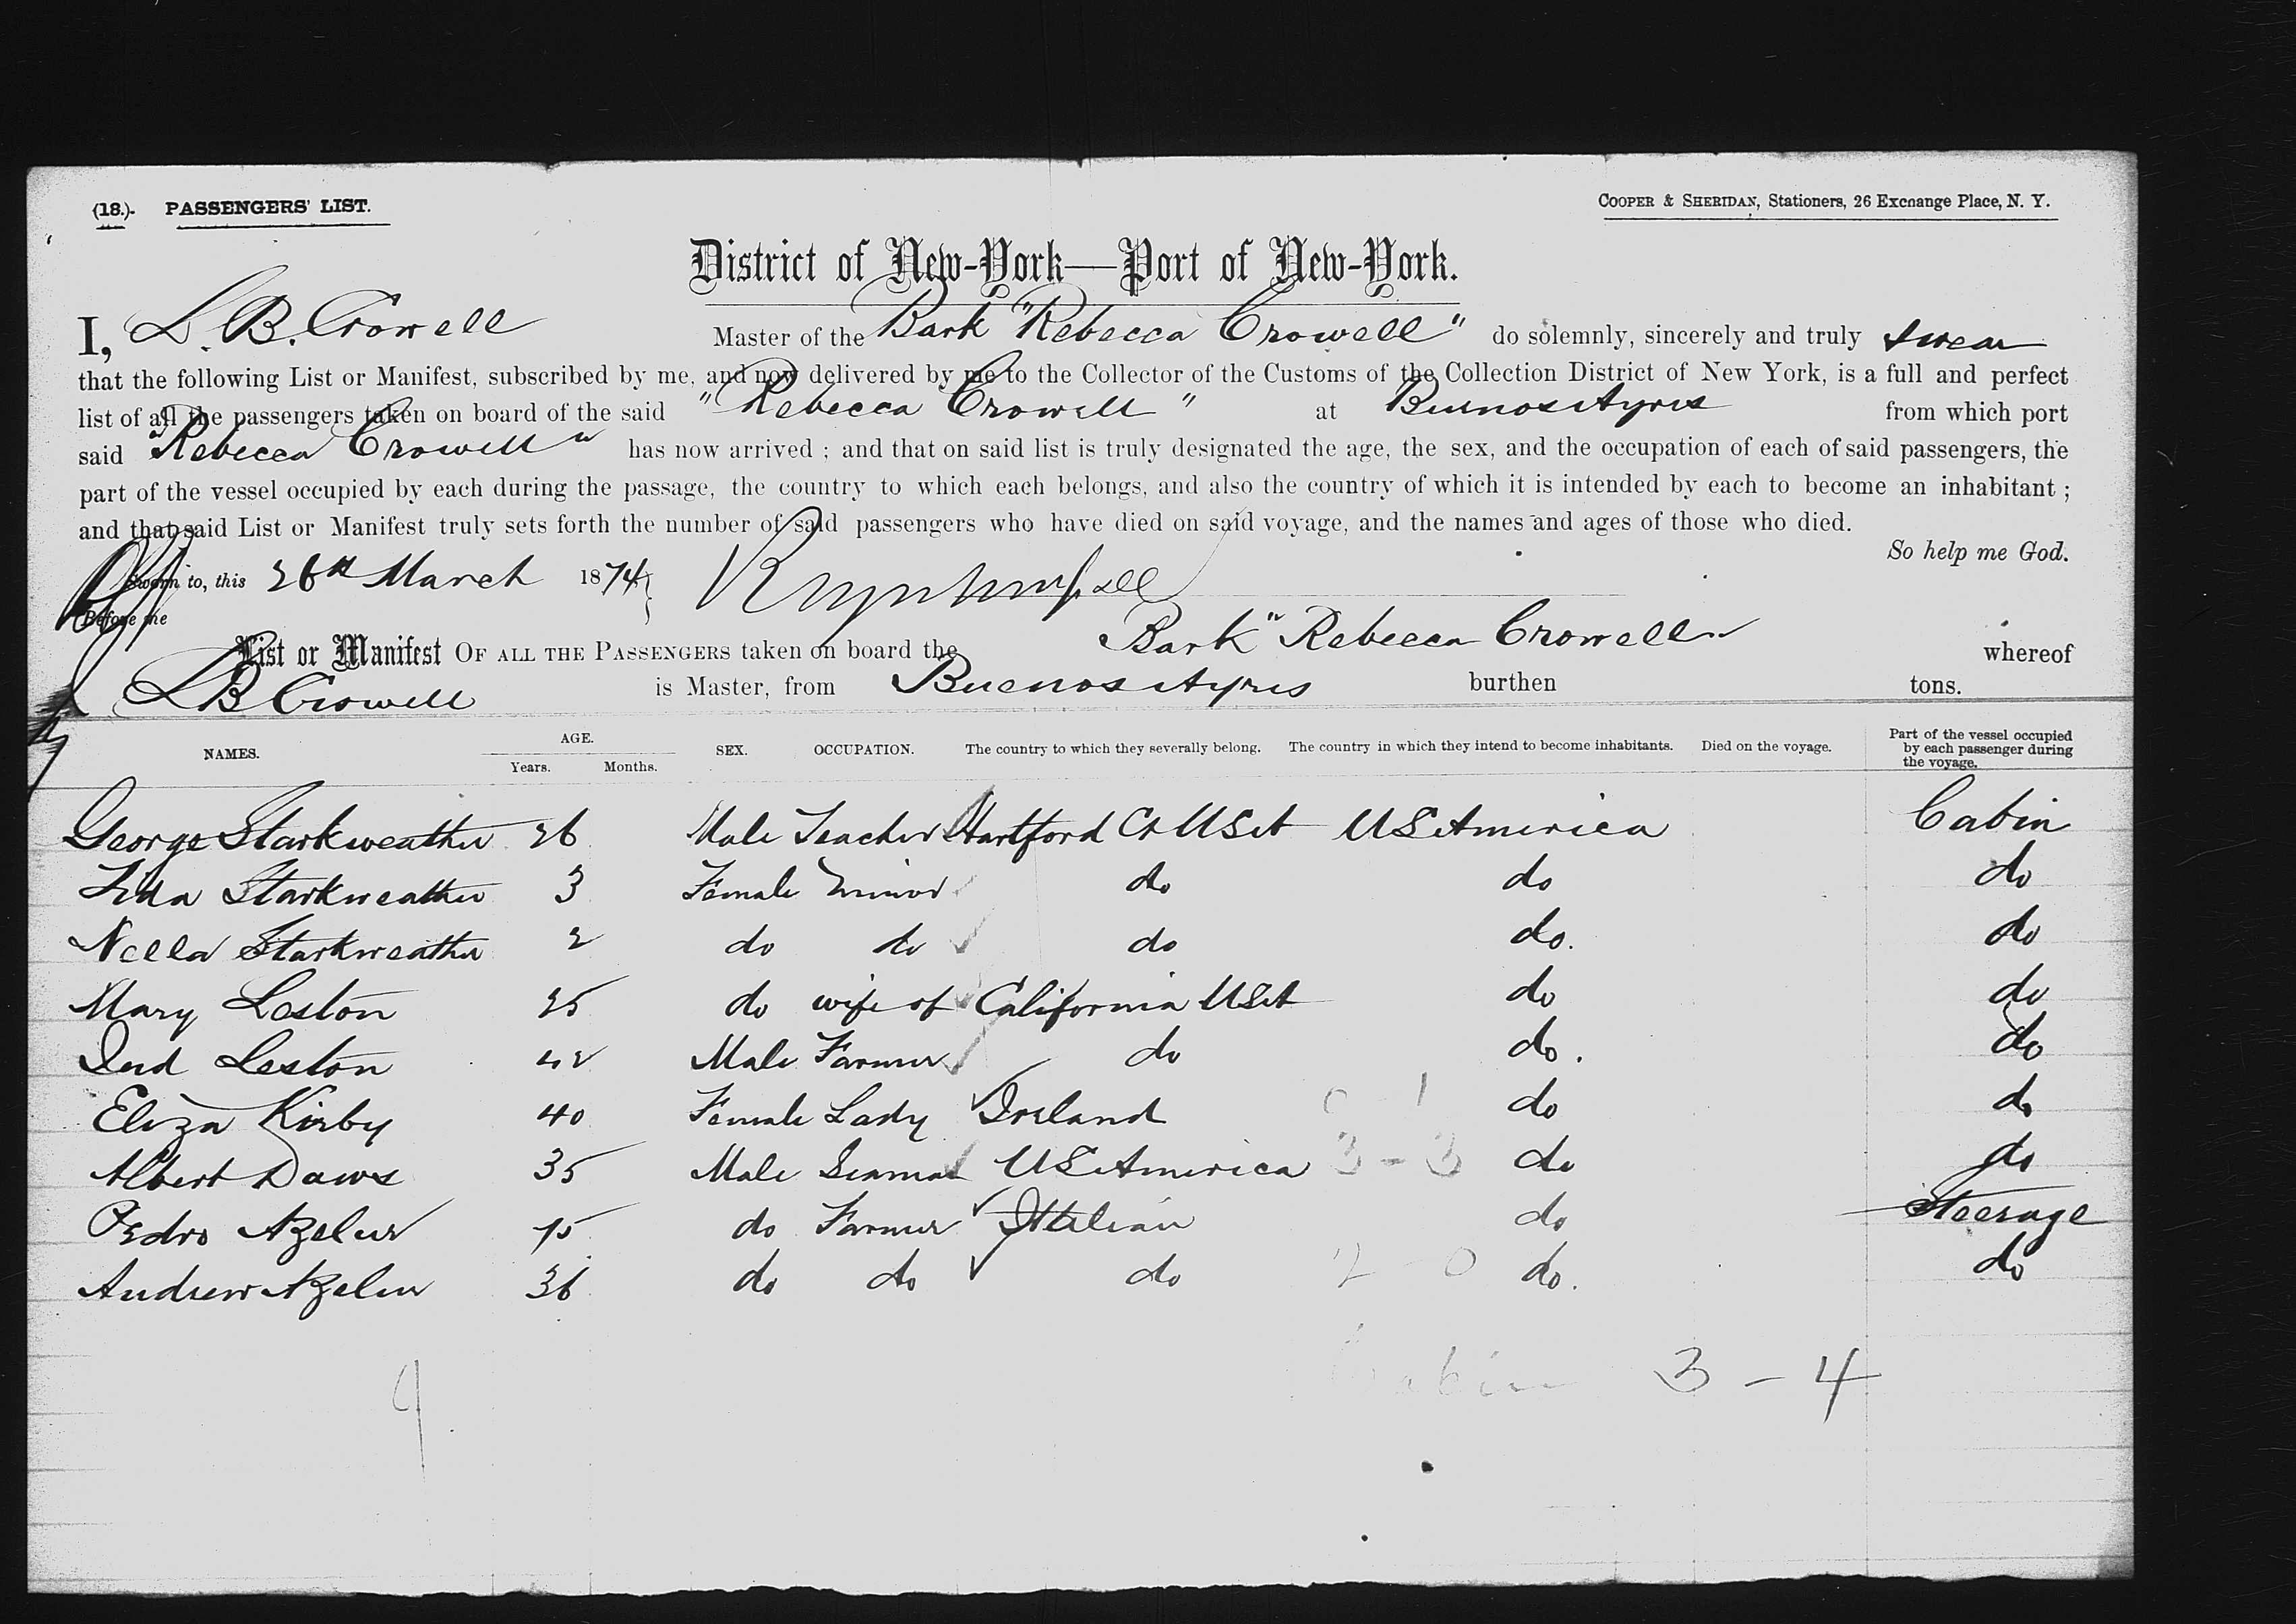 (18.) PASSENGERS' LIST.
COOPER & SHERIDAN, Stationers, 26 Exchange Place, N. Y.
District of New-York—Port of New-York.
I, L. B. Crowell Master of the Bark "Rebecca Crowell" do solemnly, sincerely and truly swear
that the following List or Manifest, subscribed by me, and now delivered by me to the Collector of the Customs of the Collection District of New York, is a full and perfect
list of all the passengers taken on board of the said "Rebecca Crowell" at Buenos Ayres from which port
said "Rebecca Crowell" has now arrived ; and that on said list is truly designated the age, the sex, and the occupation of each of said passengers, the
part of the vessel occupied by each during the passage, the country to which each belongs, and also the country of which it is intended by each to become an inhabitant ;
and that said List or Manifest truly sets forth the number of said passengers who have died on said voyage, and the names and ages of those who died.
So help me God.
Sworn to, this 26th March 1874
Before me
List or Manifest OF ALL THE PASSENGERS taken on board the Bark "Rebecca Crowell" whereof
L B Crowell is Master, from Buenos Ayres burthen tons.
NAMES. AGE. Years. Months. SEX. OCCUPATION. The country to which they severally belong. The country in which they intend to become inhabitants. Died on the voyage. Part of the vessel occupied by each passenger during the voyage.
George Starkweather 26 Male Teacher Hartford Ct USA US America Cabin
Starkweather 3 Female Minor do do do
Nella Starkweather 2 do do do do. do
Mary Leston 25 do wife of California USA do do
Leston 42 Male Farmer do do. do
Eliza Kirby 40 Female Lady Ireland 0 1 do do
Albert Daws 35 Male Seaman US America 3 - 3 do do
Pedro Azelur 45 do Farmer Ittalian do Steerage
Andrew Azelur 36 do do do 2 0 do. do
9
Cabin 3 - 4